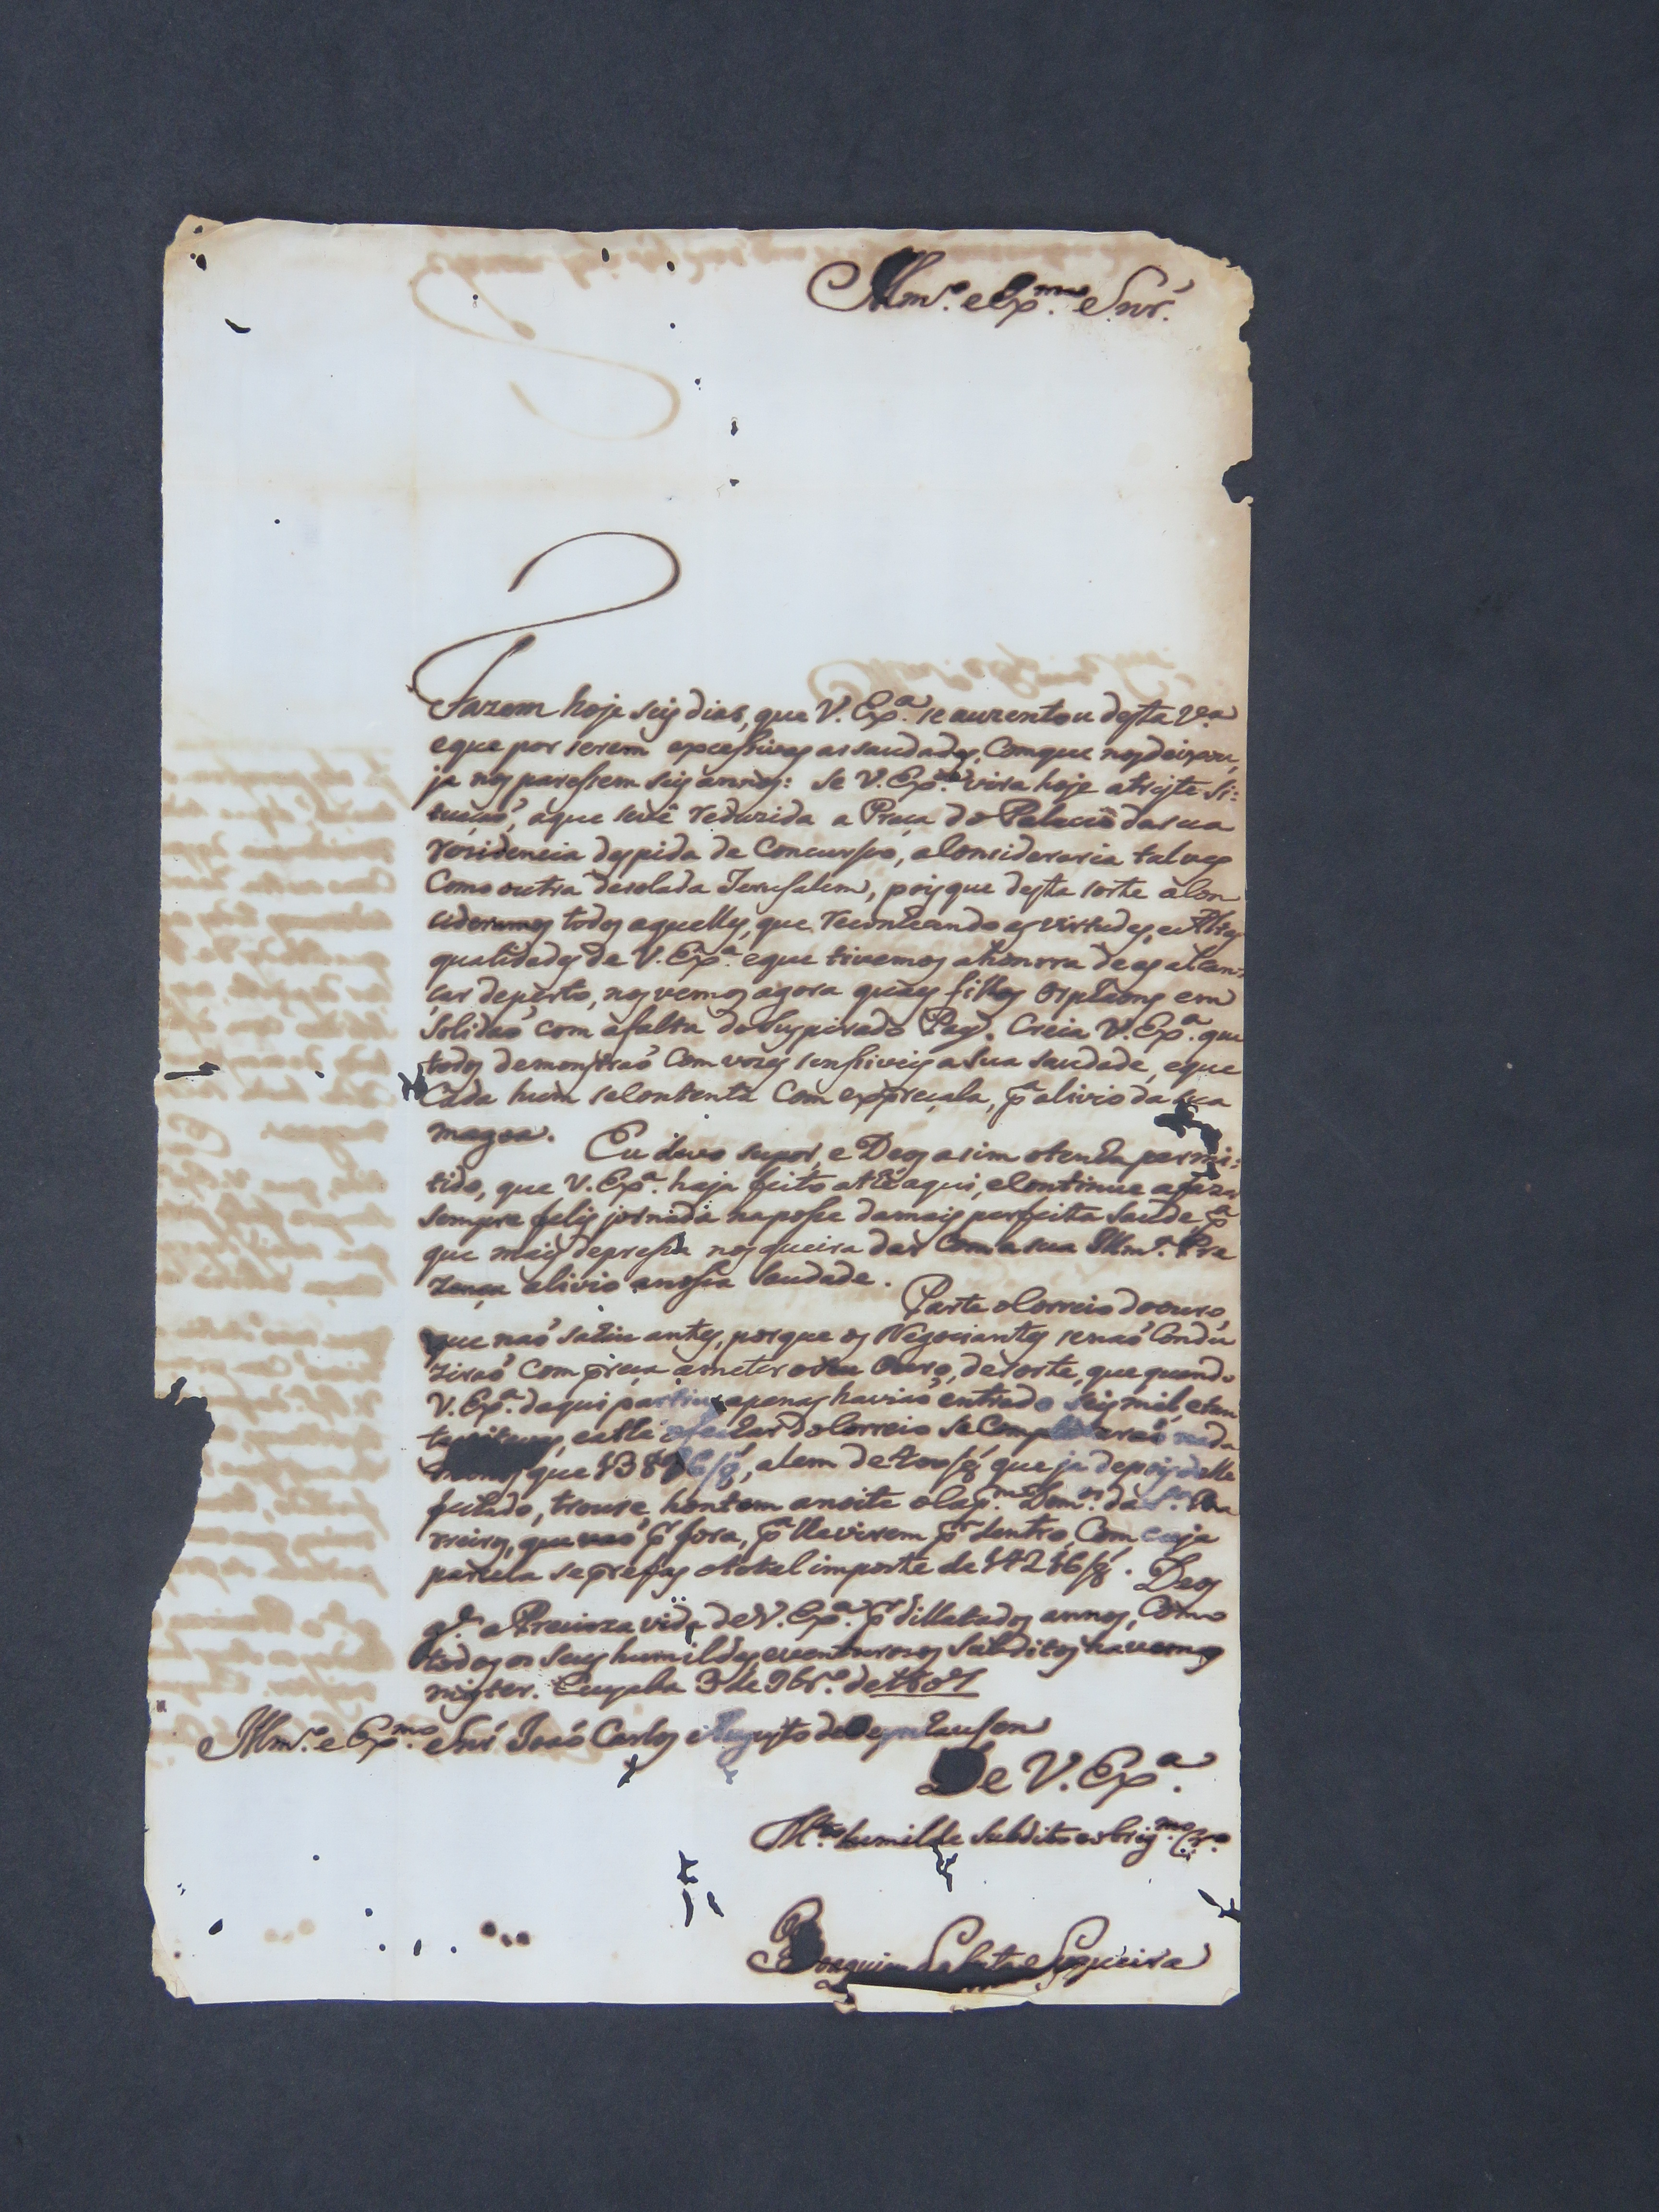 Illm.º e Ex.mo Snr.'
Fazem hoje seis dias, que V. Ex.ª se auzentou desta V.ª
eque por serem excessivas as saudades, Comque nos deixou,
ja nos paressem seis annos: se V. Ex.ª vira hoje atriste si:
tuaçaõ, aque sevê reduzida a Praça do Palacio dasua
rezidencia despida de Concursso, aConsideraria talves
Como outra desolada Jerusalem, poisque desta sorte aCon
cideramos todos aquelles, que reconhecendo as virtudes, eas Altas
qualidades de V. Ex.ª eque tivemos ahonrra deas alcan:
çar deperto, nos vemos agora quaes filhos Orphaons em
Solidaõ com afalta doSuspirado Pay. Creia V. Ex.ª que
todos demonstraõ Com vozes senssiveis aSua saudade, eque
Cada hum seContenta Com expreçala, p.ª alivio da sua
magoa. Eu devo supor, e Deos asim otenha permi:
tido, que V. Ex.ª haja feito athé aqui, eContinue afazer
sempre felis jornada naposse damais perfeita saude, p.ª
que mais depressa nos queira dar Coma sua Illm.ª Pre
zença alivio anossa saudade. Parte oCorreio doouro,
que naõ sahiu antes, porque os Negociantes senaõ Condu
ziraõ Com preça ameter oseu Ouro, desorte, que quando
V. Ex.ª daqui partiu apenas haviaõ entrado seis mil, etan
tas oitavas, eathé ofeichar doCorreio seCompletaraõ nada
menos que alem de que ja depois delle
feichado, trouxe hontem anoite oCap.m Dom.os da S.ª
que vaõ p.r fora, p.ª lhevirem p.r dentro, Com cuja
parcela seprefas ototal importe de 14216/8.ª Deos
g.e a Precioza vida deV. Ex.ª p.r dillatados annos, Como
todos os seus humildes eventurozos Subditos havemos
mister. Cuyaba 3 de 9br.º de
Illm.º e Ex.mo Snr Joaõ Carlos Augusto de Oeynhausen
De V. Ex.ª
M.to humilde Subdito eobrig.mo Cr.º
Joaquim Siqueira